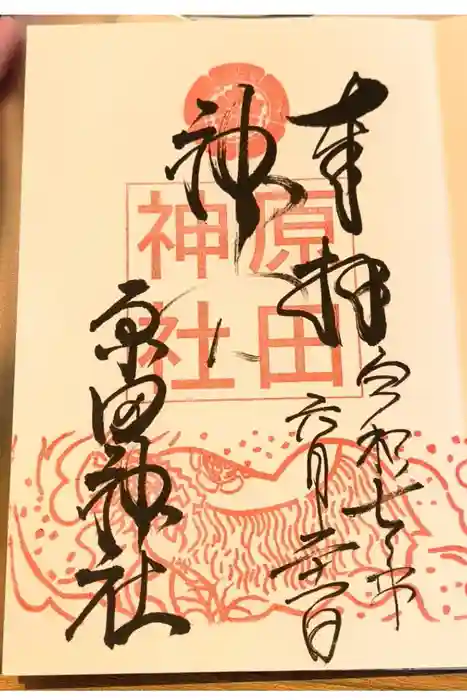 奉拝
令和七年
六月日
神
原田
神社
原田神社